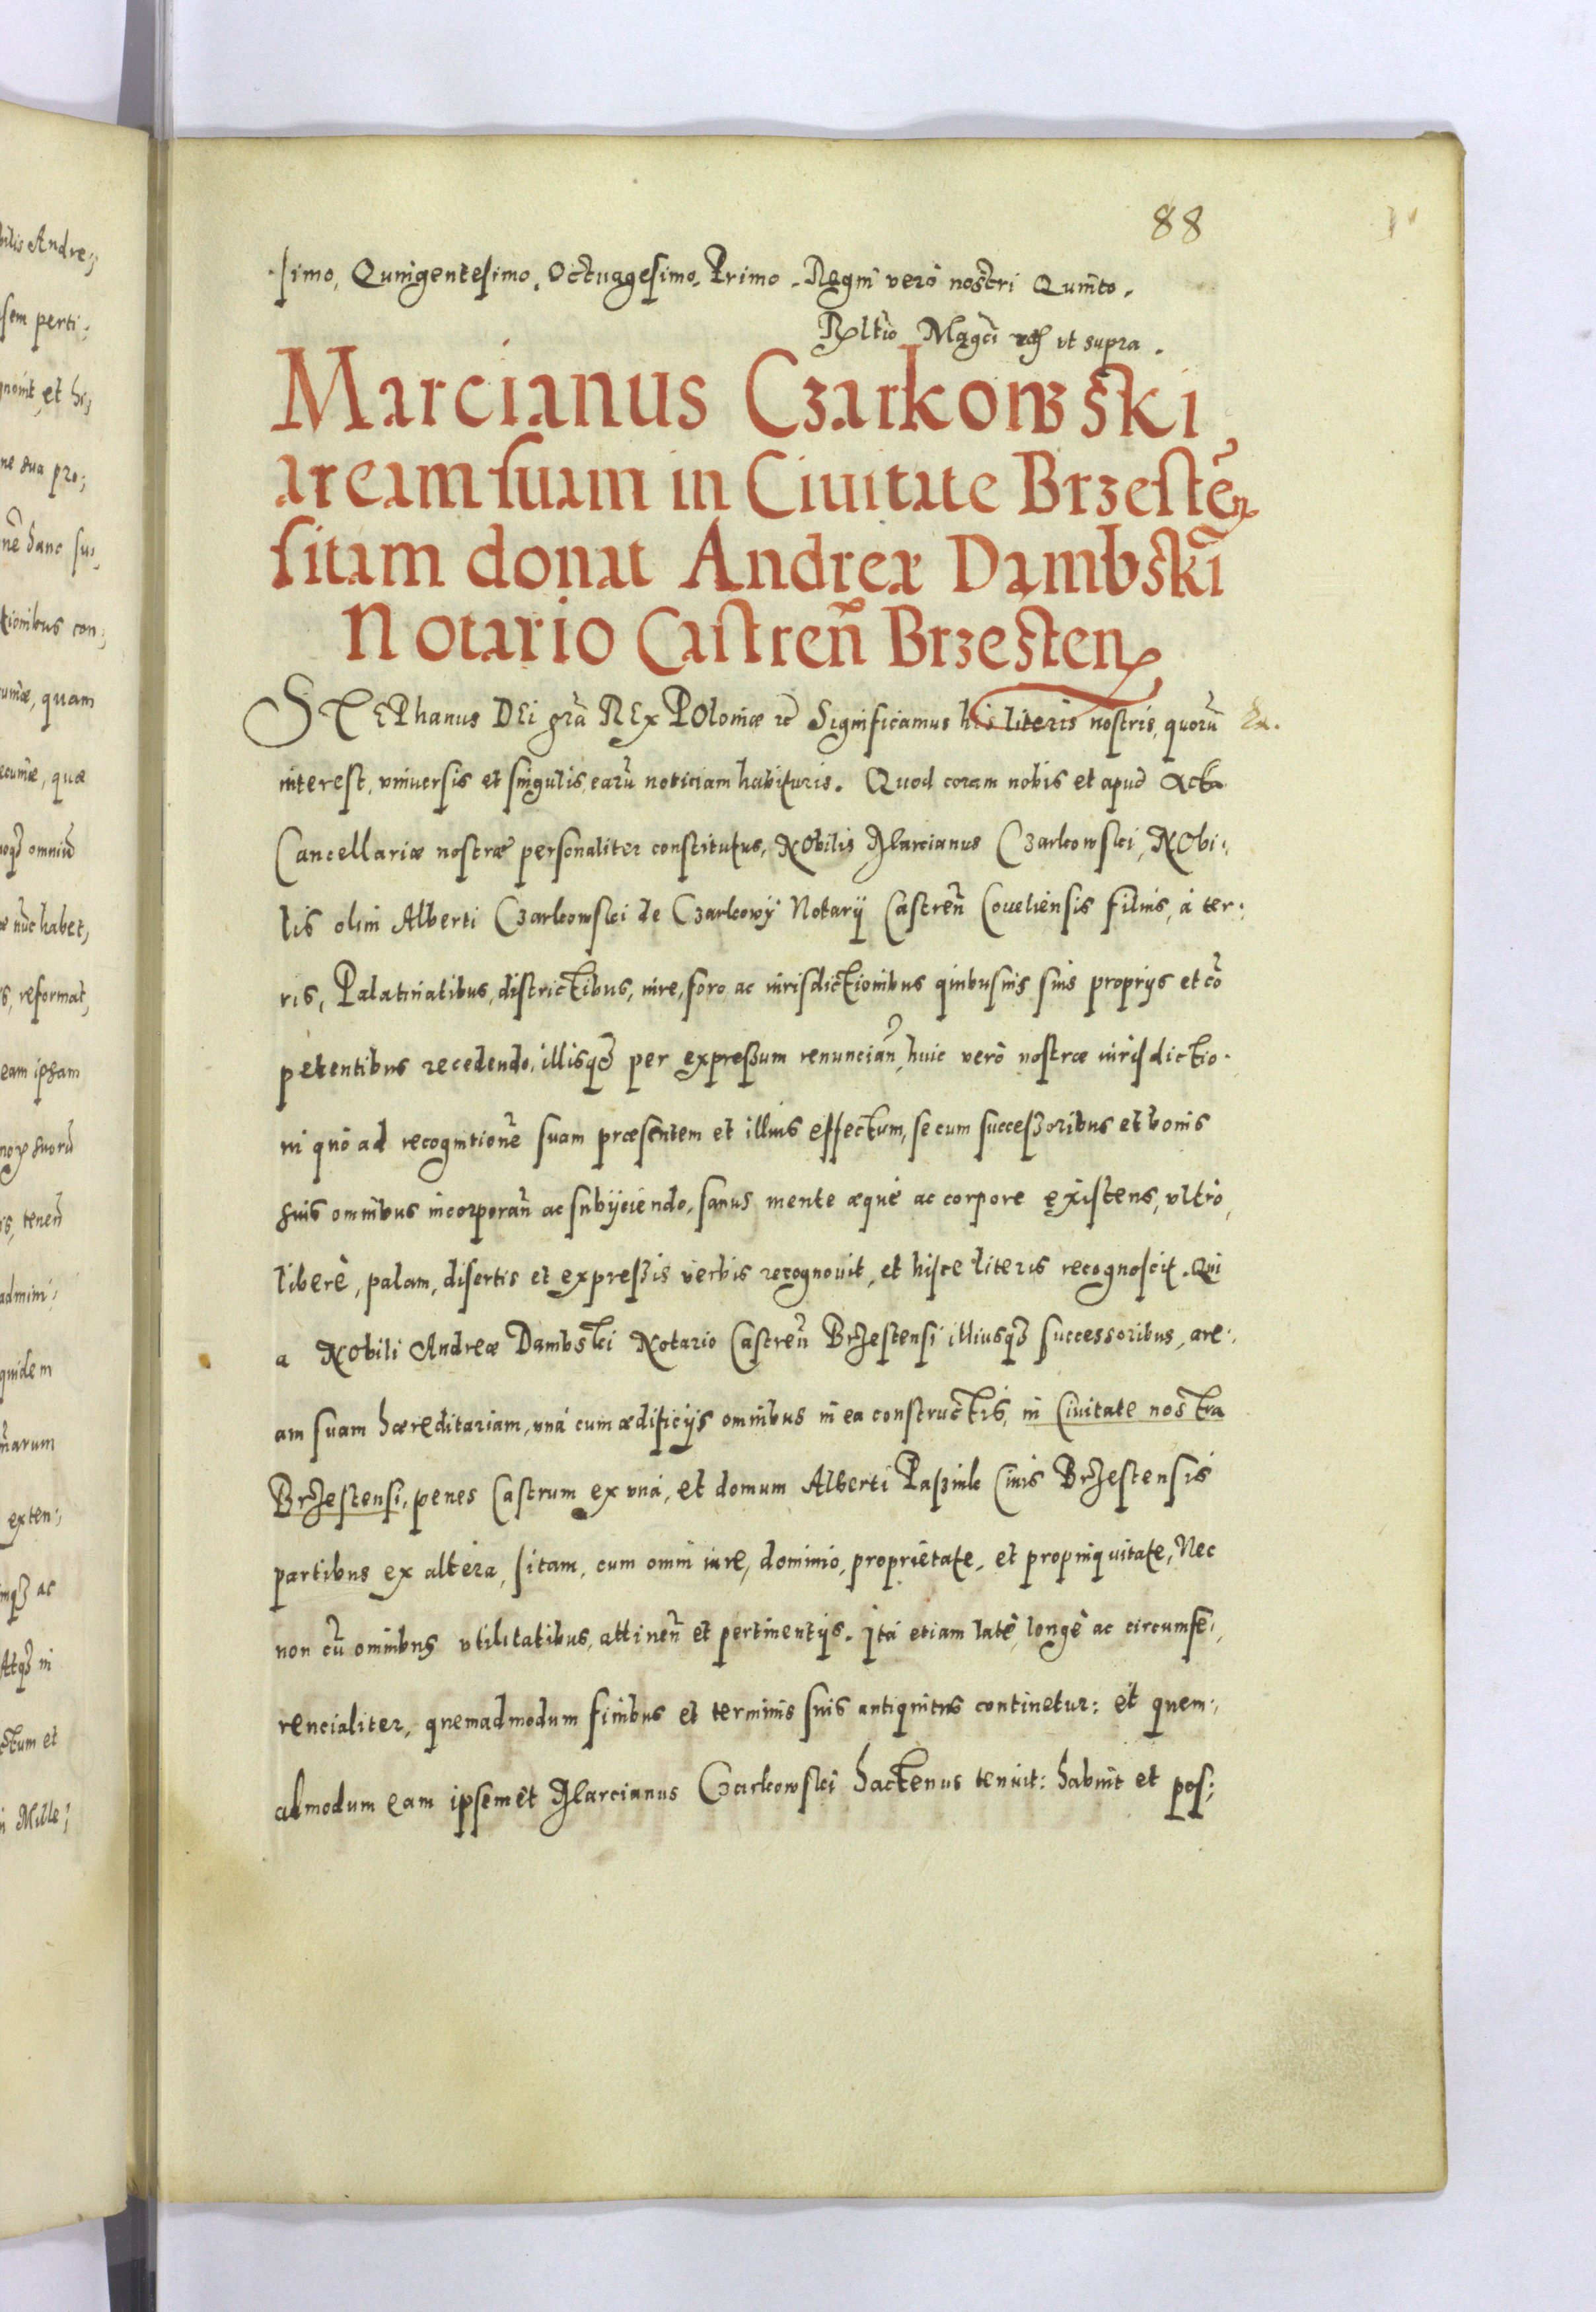 88
simo, Quingentesimo, Octuagesimo, Primo. Regni verò nostri Quinto.
Rltio Magci ut supra.
Marcianus Czarkowski
aream suam in Ciuitate Brzesteñ
sitam donat Andreæ Dambskī
Notario Castreñ Brzesten
STEPhanus DEi grã REx POloniæ Significamus his literis nostris, quorũ
interest, vniuersis et singulis, earũ noticiam habituris. Quod coram nobis et apud Acta
Cancellariæ nostræ personaliter constitutus, NObilis Marcianus Czarkowski, NObi:
lis olim Alberti Czarkowski de Czarkowÿ Notarij Castreñ Coueliensis filius, à ter:
ris, Palatinatibus, districtibus, iure, foro ac iurisdictionibus quibusuis suis proprijs et cõ
petentibus recedendo, illisq3 per expressum renunciañ, huic verò nostræ iurisdictio.
ni quò ad recognitionẽ suam præsentem et illius effectum, se cum successoribus et bonis
suis omnibus incorporañ ac subijciendo, sanus mente æquè ac corpore existens, vltrò,
liberè, palam, disertis et expressis verbis recognouit, et hisce literis recognoscit. Qui
a NObili Andreæ Dambski Notario Castreñ Brzestensi illiusq3 successoribus, are:
am suam hæreditariam, vnà cum ædificijs omnibus in ea constructis, in Ciuitate nostra
Brzestensi, penes Castrum ex vnà, et domum Alberti Paszink Ciuis Brzestensis
partibus ex altera, sitam, cum omni iure, dominio, proprietate, et propinquitate, Nec
non cũ omnibus vtilitatibus, attineñ et pertinentijs. Ità etiam latè, longè ac circumfe:
rencialiter, quemadmodum finibus et terminis suis antiquitus continetur: et quem:
admodum eam ipsemet Marcianus Czarkowski hactenus tenuit: habuit et pos:
bilis Andre:
sem perti:
gnouit, et hi:
ne sua pro:
nẽ hanc su:
tionibus con:
quam
quæ
omniũ
nũc habet,
reformat,
eam ipsam
suorũ
teneñ
admini:
quidem
exten:
ac
Atq3 in
ctum et
Mille: